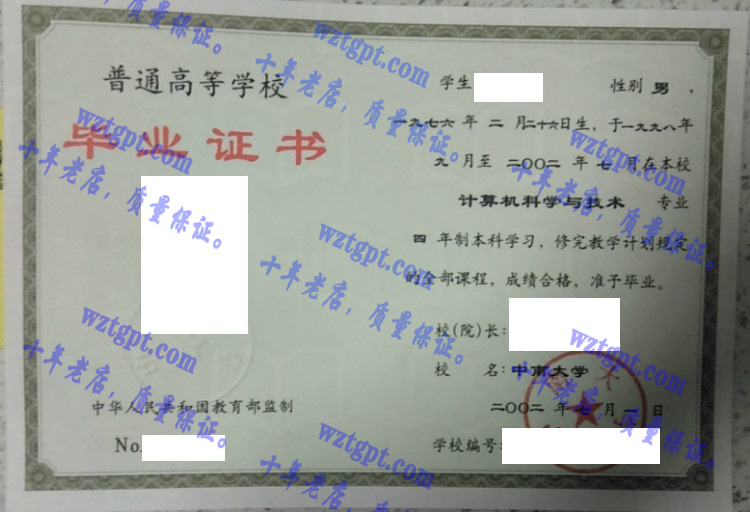 普通高等学校
毕业证书
中华人民共和国教育部监制
No.
学生 性别 男 ，
一九七六 年 二 月二十六日生，于一九九八年
九 月至 二〇〇二 年 七 月在本校
计算机科学与技术 专业
四 年制本科学习，修完教学计划规定
的全部课程，成绩合格，准予毕业。
校(院)长：
校 名：中南大学
二〇〇二 年 七 月 一 日
学校编号：
wztgpt.com
十年老店，质量保证。
wztgpt.com
十年老店，质量保证。
wztgpt.com
十年老店，质量保证。
wztgpt.com
十年老店，质量保证。
wztgpt.com
十年老店，质量保证。
wztgpt.com
十年老店，质量保证。
wztgpt.com
十年老店，质量保证。